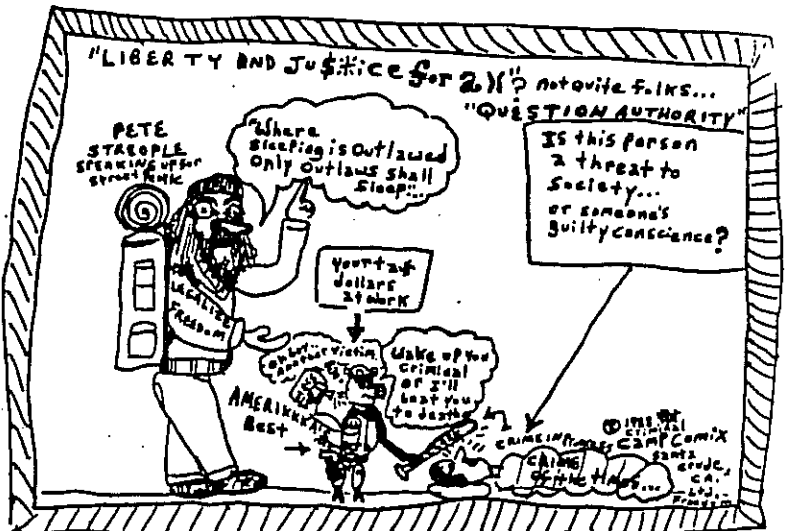 "LIBERTY AND JU$TICE for 2)("? not quite folks...
"QUESTION AUTHORITY"
PETE
STREOPLE
SPEAKING UP for
street FOLK
"Where
Sleeping is Outlawed
Only Outlaws Shall
Sleep"...
Is this person
a threat to
Society...
or someone's
guilty conscience?
LEGALIZE
FREEDOM
your tax
dollars
at work
oh boy
another victim
Wake up You
Criminal
or I'll
beat you
to death
AMERIKKKA'S
BEST
CRIME IN PROGRESS
crime
of the times...
criminal
CAMP COMIX
santa
crude,
CA.
Ltd.